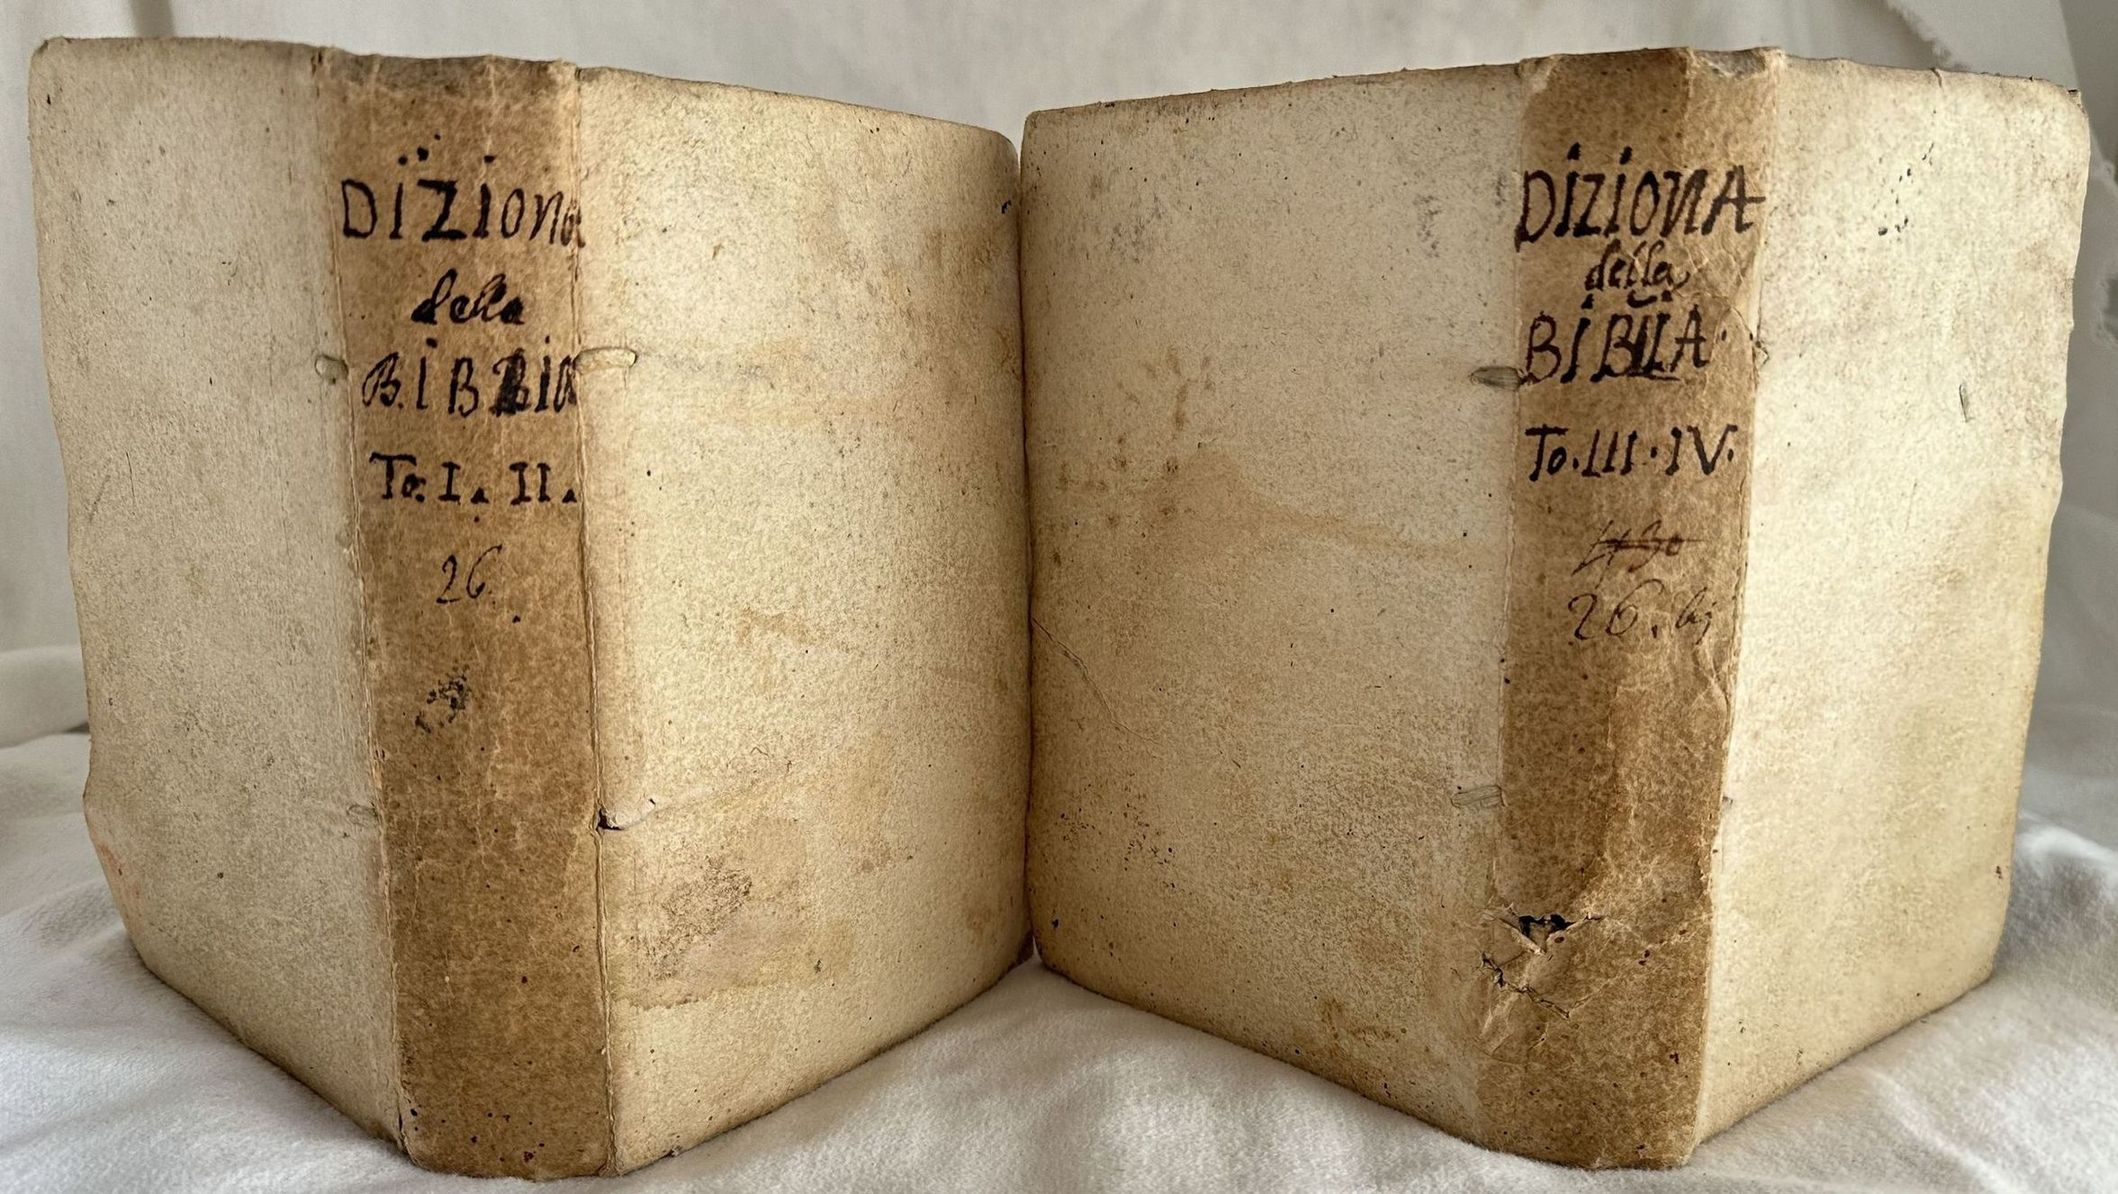 DIZIONA
della
BIBBIA
To. I. II.
26.
DIZIONA
della
BIBLIA.
To. III. IV.
430
26.